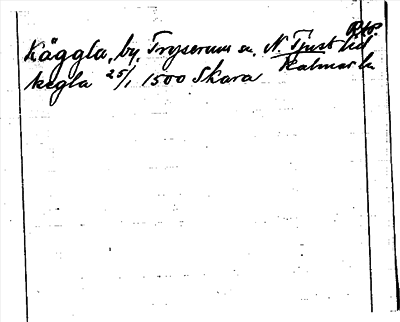 Käggla, by, Tryserum sn, N. Tjust hd
Kalmar ln
kegla 25/1 1500 Skara